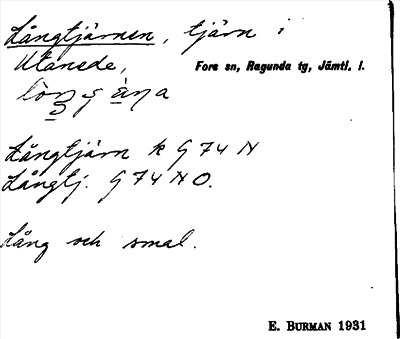 Långtjärnen, tjärn i
Utanede, Fors sn, Ragunda tg, Jämtl. l.
Långtjärn k G 74 N
Långtj. G 74 N O.
Lång och smal.
E. BURMAN 1931